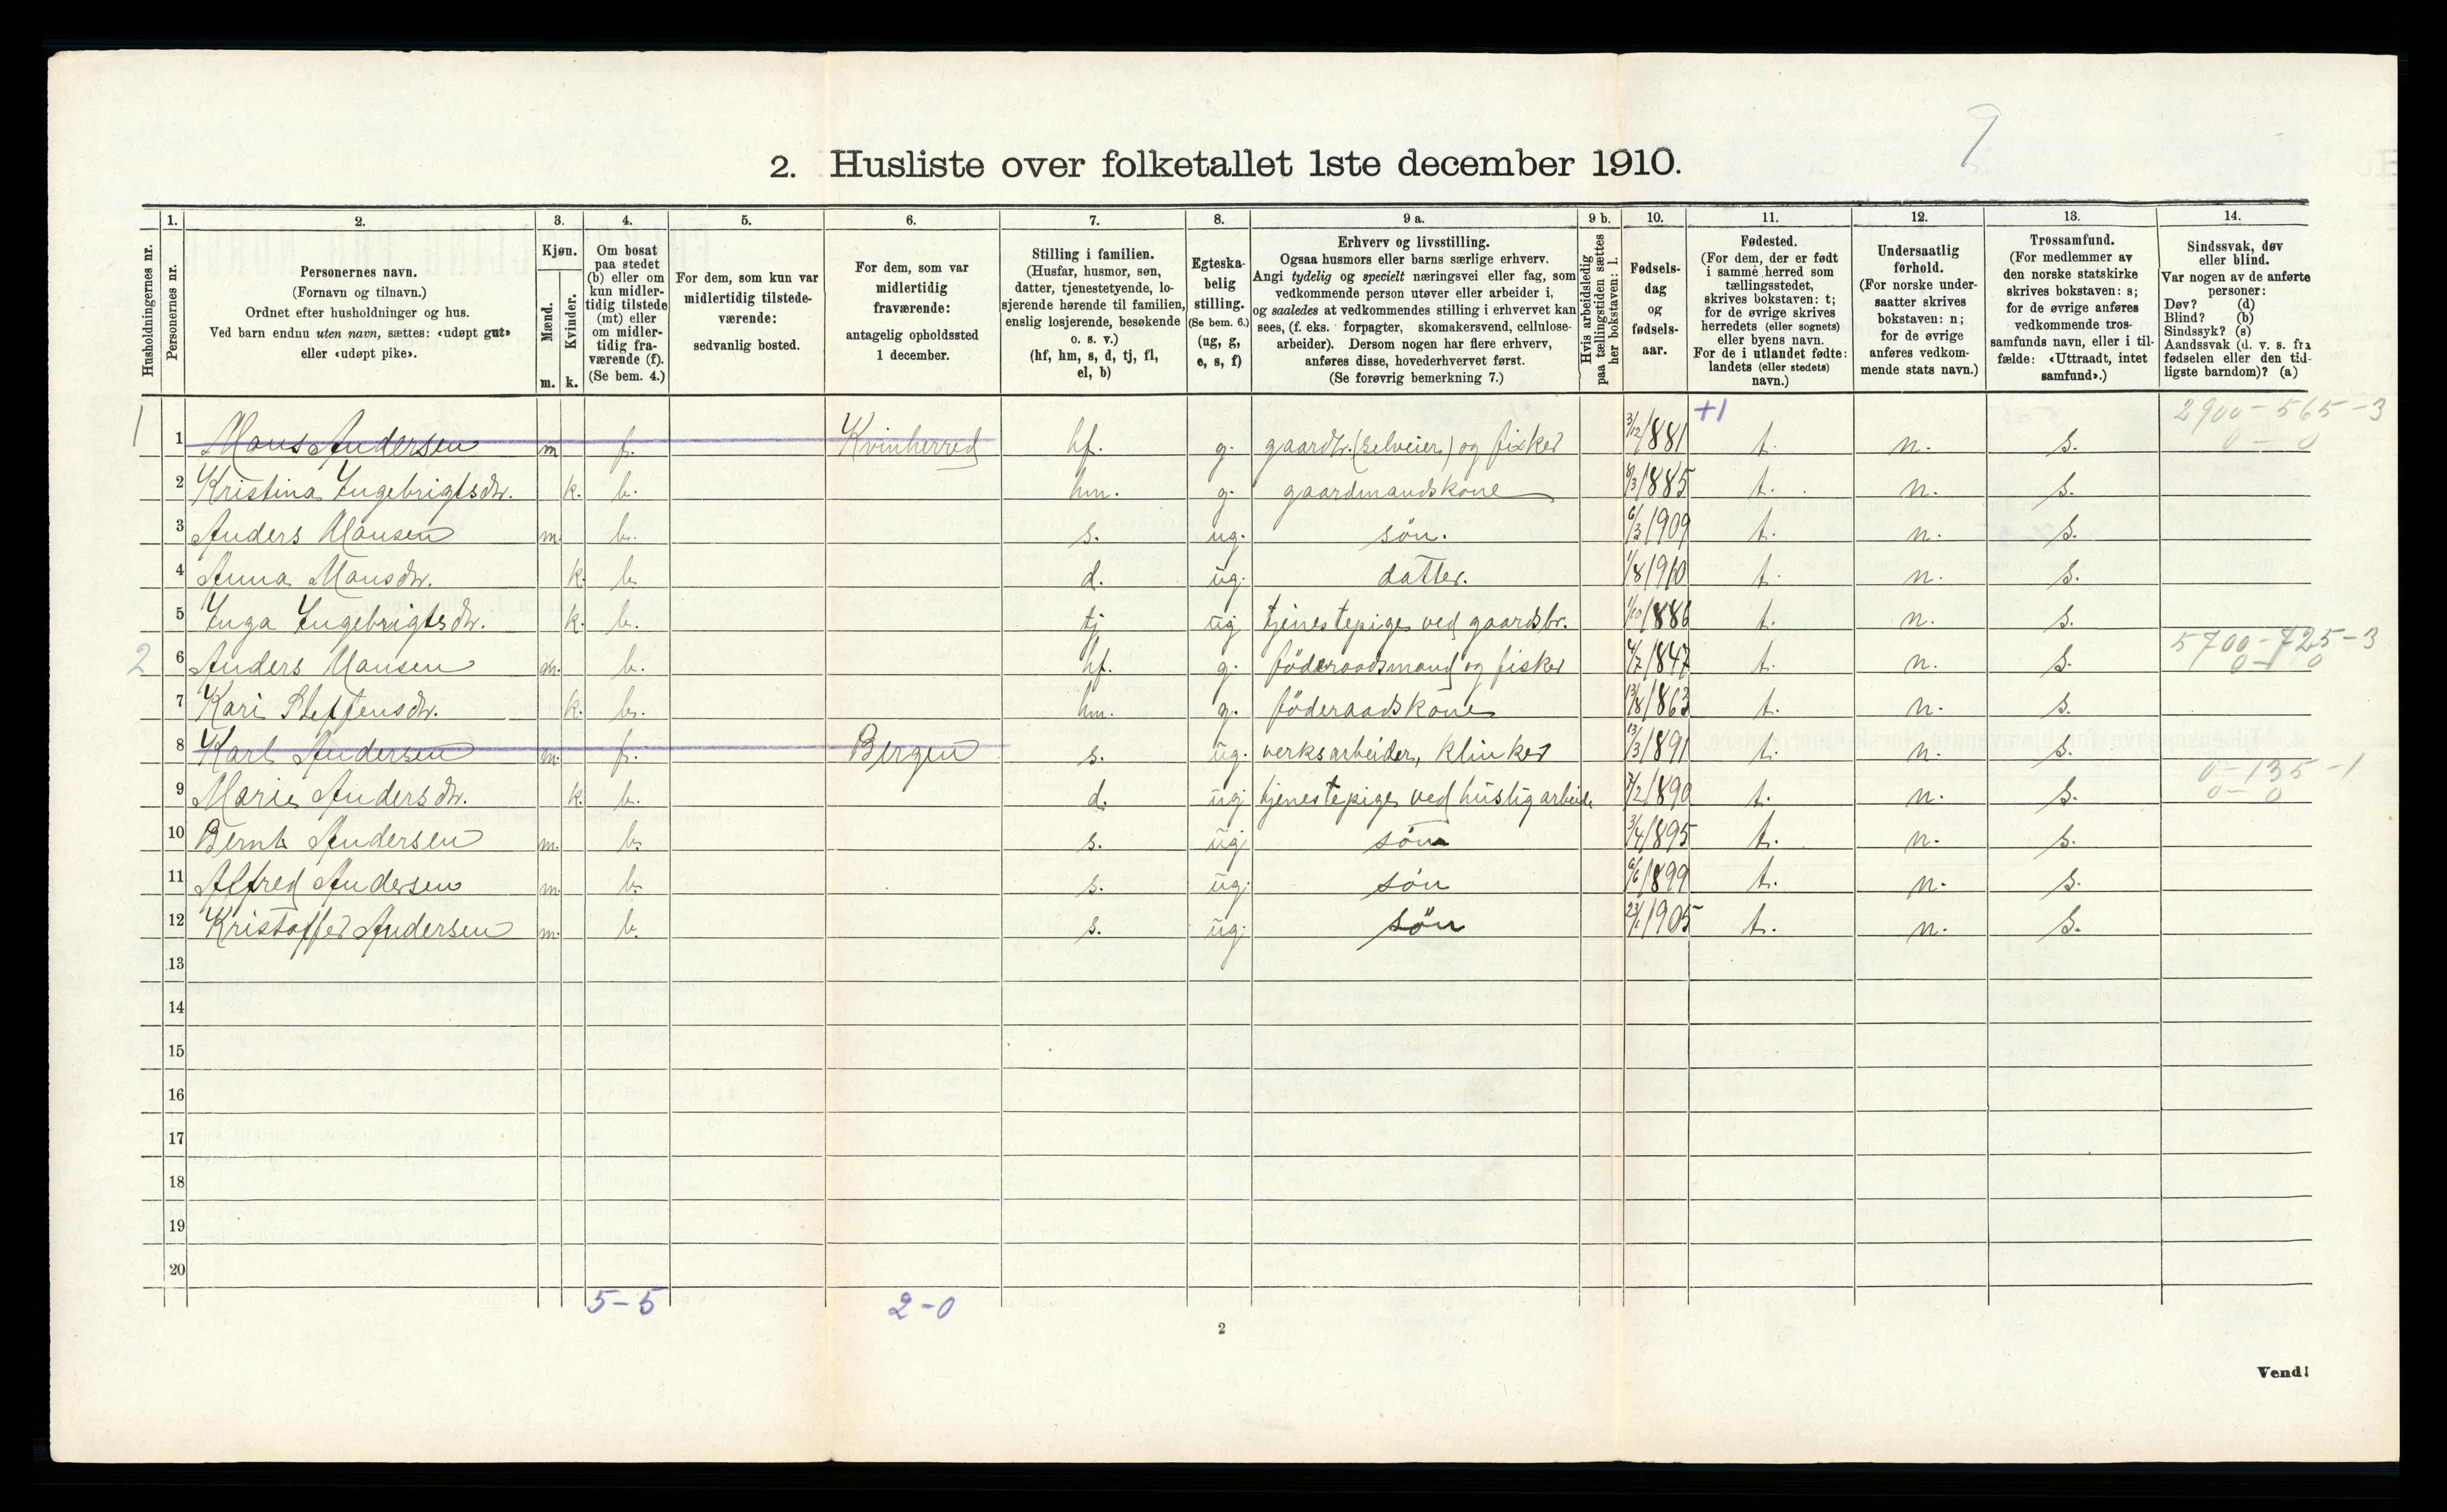 9
2. Husliste over folketallet 1ste december 1910.
1. 2. 3. 4. 5. 6. 7. 8. 9 a. 9 b. 10. 11. 12. 13. 14.
Husholdningernes nr.
Personernes nr.
Personernes navn.
(Fornavn og tilnavn.)
Ordnet efter husholdninger og hus.
Ved barn endnu uten navn, sættes: «udøpt gut»
eller «udøpt pike».
Kjøn.
Mænd.
Kvinder.
m. k.
Om bosat
paa stedet
(b) eller om
kun midler-
tidig tilstede
(mt) eller
om midler-
tidig fra-
værende (f).
(Se bem. 4.)
For dem, som kun var
midlertidig tilstede-
værende:
sedvanlig bosted.
For dem, som var
midlertidig
fraværende:
antagelig opholdssted
1 december.
Stilling i familien.
(Husfar, husmor, søn,
datter, tjenestetyende, lo-
sjerende hørende til familien,
enslig losjerende, besøkende
o. s. v.)
(hf, hm, s, d, tj, fl,
el, b)
Egteska-
belig
stilling.
(Se bem. 6.)
(ug, g,
e, s, f)
Erhverv og livsstilling.
Ogsaa husmors eller barns særlige erhverv.
Angi tydelig og specielt næringsvei eller fag, som
vedkommende person utøver eller arbeider i,
og saaledes at vedkommendes stilling i erhvervet kan
sees, (f. eks. forpagter, skomakersvend, cellulose-
arbeider). Dersom nogen har flere erhverv,
anføres disse, hovederhvervet først.
(Se forøvrig bemerkning 7.)
Hvis arbeidsledig
paa tællingstiden sættes
her bokstaven: l.
Fødsels-
dag
og
fødsels-
aar.
Fødested.
(For dem, der er født
i samme herred som
tællingsstedet,
skrives bokstaven: t;
for de øvrige skrives
herredets (eller sognets)
eller byens navn.
For de i utlandet fødte:
landets (eller stedets)
navn.)
Undersaatlig
forhold.
(For norske under-
saatter skrives
bokstaven: n;
for de øvrige
anføres vedkom-
mende stats navn.)
Trossamfund.
(For medlemmer av
den norske statskirke
skrives bokstaven: s;
for de øvrige anføres
vedkommende tros-
samfunds navn, eller i til-
fælde: «Uttraadt, intet
samfund».)
Sindssvak, døv
eller blind.
Var nogen av de anførte
personer:
Døv? (d)
Blind? (b)
Sindssyk? (s)
Aandssvak (d. v. s. fra
fødselen eller den tid-
ligste barndom)? (a)
+1 2900-565-3
1 1 Mons Andersen m f. Kvinherred hf. g. gaardbr. (selveier) og fisker 3/12 1881 t. n. s. 0-0
2 Kristina Ingebrigtsdtr. k. b. hm. g. gaardmandskone 8/3 1885 t. n. s.
3 Anders Monsen m. b. s. ug. søn. 6/3 1909 t. n. s.
4 Anna Monsdtr. k. b. d. ug. datter. 1/8 1910 t. n. s.
5 Inga Ingebrigtsdtr. k. b. tj ug tjenestepige ved gaardsbr. 1/10 1886 t. n. s.
5700-725-3
2 6 Anders Monsen m. b. hf. g. föderaadsmand og fisker 4/7 1847 t. n. s. 0-0
7 Kari Steffensdtr. k. b. hm. g. föderaadskone 13/8 1863 t. n. s.
8 Karl Andersen m. f. Bergen s. ug. verksarbeider, klinker 13/3 1891 t. n. s.
0-135-1
9 Marie Andersdtr. k. b. d. ug. tjenestepige ved huslig arbeide 7/2 1890 t. n. s. 0-0
10 Bernt Andersen m. b. s. ug søn 3/4 1895 t. n. s.
11 Alfred Andersen m. b. s. ug. søn 9/6 1899 t. n. s.
12 Kristoffer Andersen m. b. s. ug. søn 23/1 1905 t. n. s.
13
14
15
16
17
18
19
20
5-5 2-0
2
Vend!